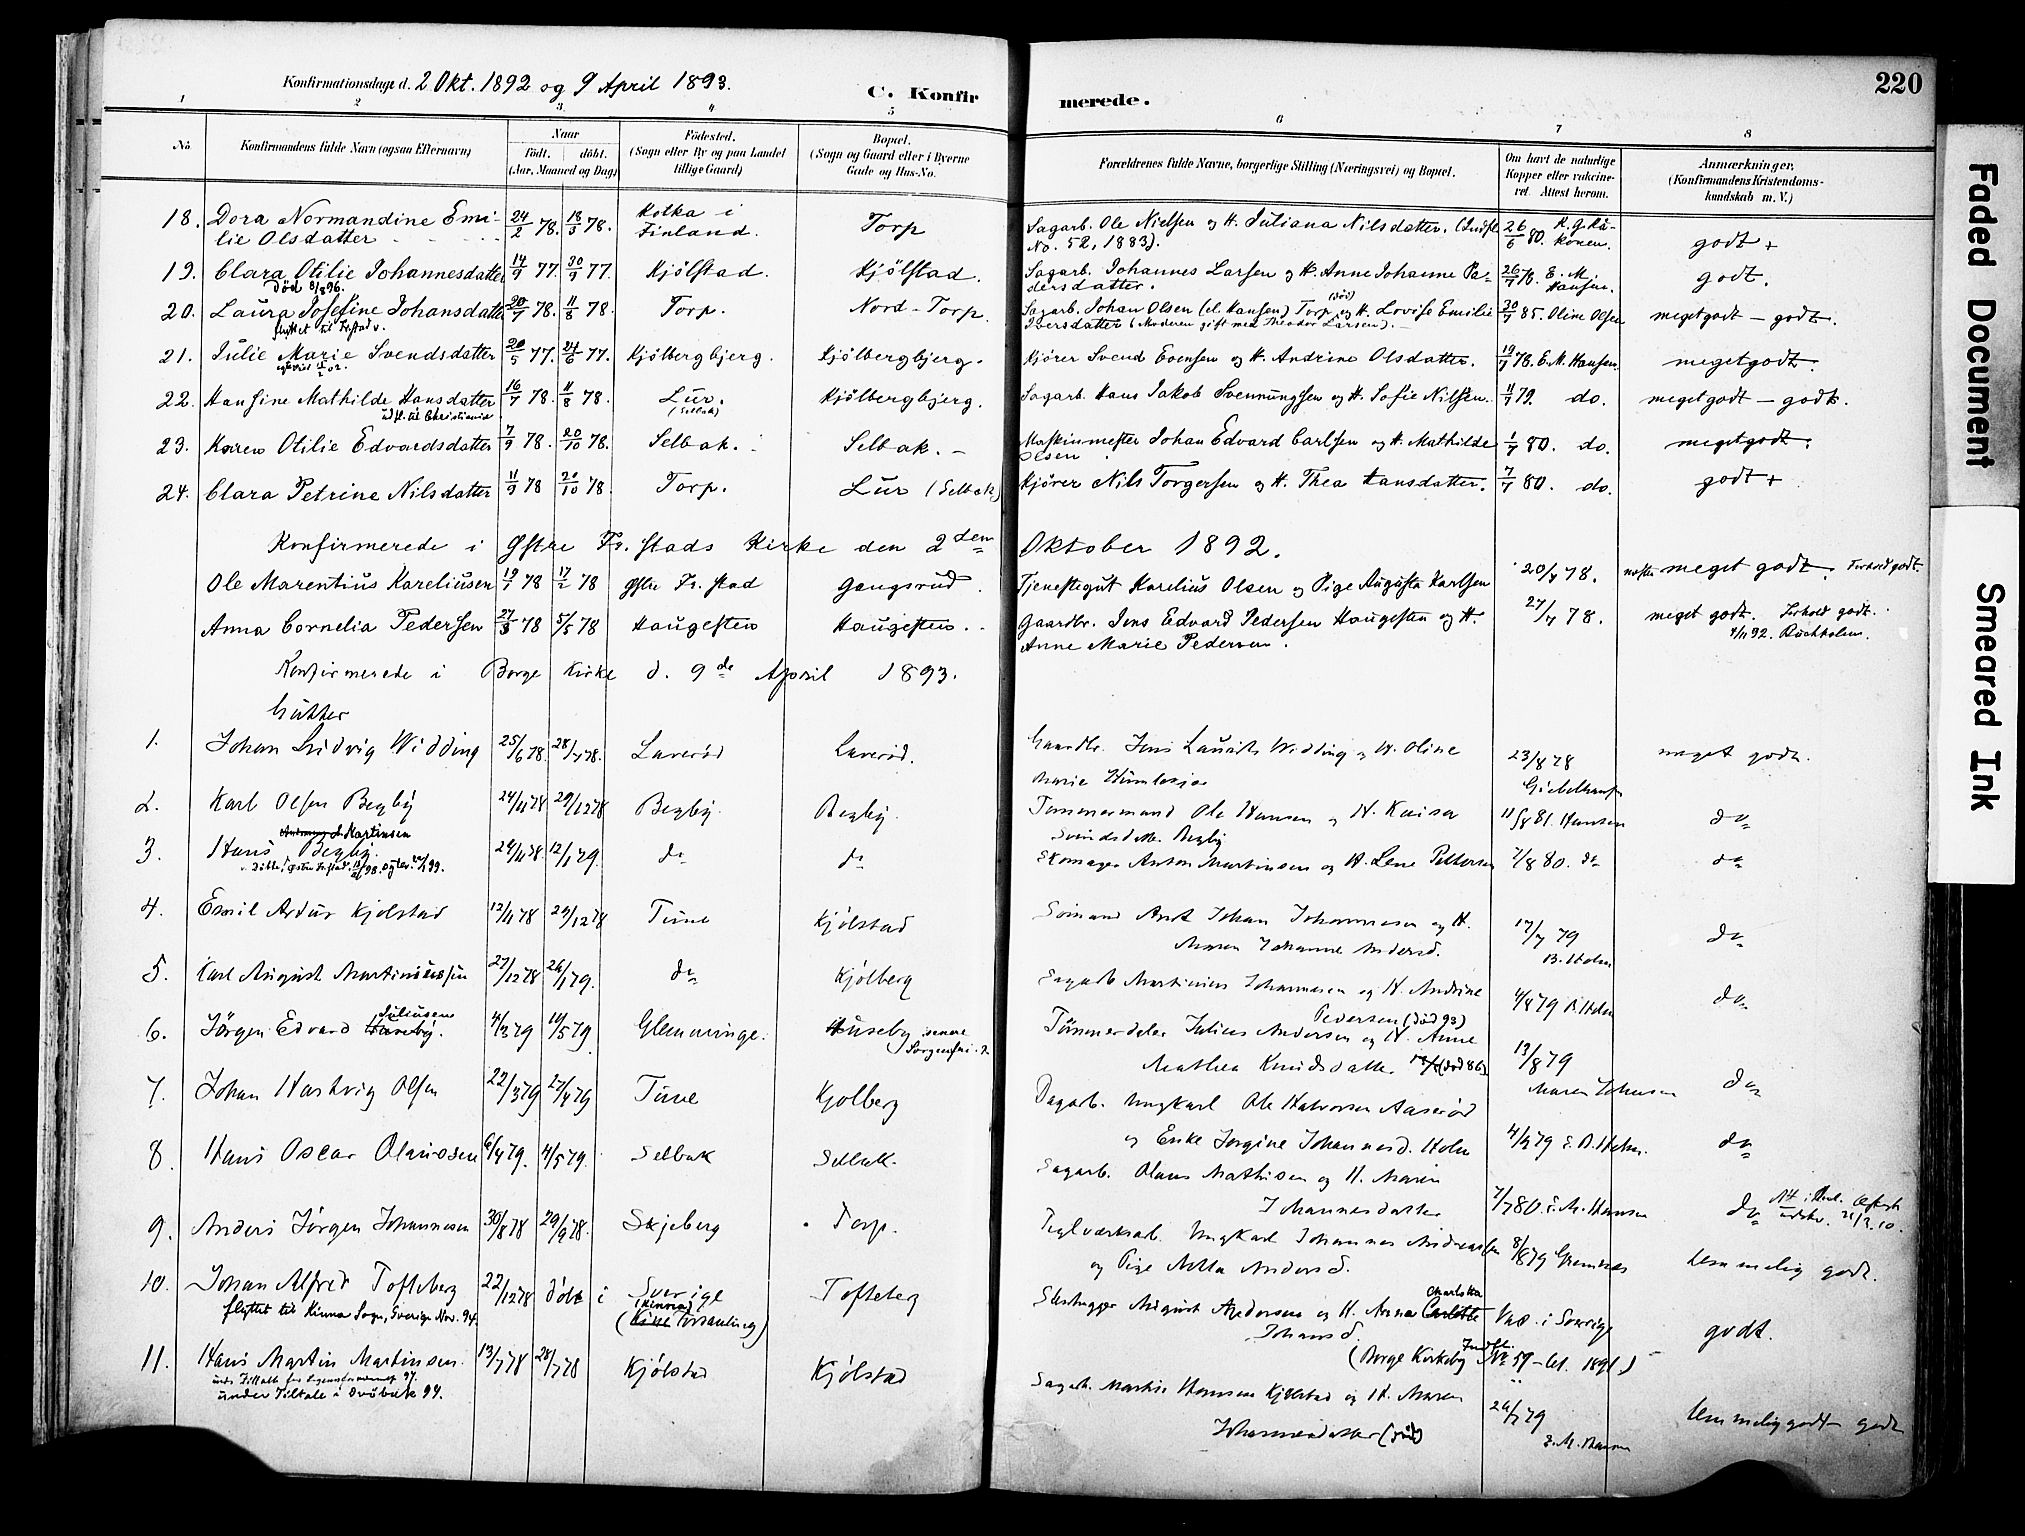 Konfirmationsdage d. 2 Okt. 1892 og 9 April 1893.
C. Konfir merede.
220
1 2 3 4 5 6 7 8
No.
Konfirmandens fulde Navn (ogsaa Efternavn)
Naar
født. døbt.
(Aar, Maaned og Dag)
Fødested.
(Sogn eller By og paa Landet
tillige Gaard)
Bopæl.
(Sogn og Gaard eller i Byerne
Gade og Hus-No.
Forældrenes fulde Navne, borgerlige Stilling (Næringsvei) og Bopæl.
Om havt de naturlige
Kopper eller vaccine-
ret. Attest herom.
Anmærkninger,
(Konfirmandens Kristendoms-
kundskab m. V.)
18. Dora Normandine Emi- 24/2 78. 18/5 78. Kotka i Torp Sagarb. Ole Nielsen og H. Juliana Nilsdatter. (Indfl. 26/6 80.
lie Olsdatter Finland. No. 52, 1883). godt +
19. Clara Otilie Johannesdatter 14/9 77. 30/9 77. Kjölstad. Kjölstad. Sagarb. Johannes Larsen og H. Anne Johanne Pe- 26/7 78. E. M. Hansen. godt.
Död 8/8 96. dersdatter.
20. Laura Josefine Johansdatter 20/7 78. 11/8 78. Torp. Nord-Torp. Sagarb. Johan Olsen (el. Hansen) Torp (död) og H. Lovise Emilie 30/7 85. Oline Olsen megetgodt - godt.
flyttet til Frstad v. Iversdatter (Moderen gift med Theodor Larsen).
21. Julie Marie Svendsdatter 20/5 77. 24/6 77. Kjölbergbjerg. Kjölbergbjerg. Kjörer Svend Evensen og H. Andrine Olsdatter. 19/7 78. E. M. Hansen. megetgodt.
22. Hansine Mathilde Hansdatter 16/7 78. 11/8 78. Lur. Kjölbergbjerg. Sagarb. Hans Jakob Svennungsen og H. Sofie Nilsen. 11/7 79. do. megetgodt - godt.
udfl. til Christiania (Selbak)
23. Karen Otilie Edvardsdatter 7/9 78. 20/10 78. Selbak. Selbak. Maskinmester Johan Edvard Carlsen og H. Mathilde 1/7 80. do. megetgodt.
Olsen
24. Clara Petrine Nilsdatter 11/9 78 20/10 78. Torp. Lur (Selbak) Kjörer Nils Torgersen og H. Thea Hansdatter. 7/7 80. do. godt +
Konfirmerede i Østre Fr. stads Kirke den 2den Oktober 1892.
Ole Marentius Kareliusen 19/1 78 17/2 78 Østre Fr. stad Gangsrud. Tjenestegut Karelius Olsen og Pige Augusta Karlsen 20/7 78. meget godt. Forhold godt
Anna Cornelia Pedersen 27/3 78 5/5 78 Haugesten Haugesten. Gaardbr. Jens Edvard Pedersen Haugesten og H. 27/7 78. meget godt. Forhold godt.
Anne Marie Pedersen. 4/11 92. Buchholm.
Konfirmerede i Borge Kirke d. 9de April 1893.
Gutter
1. Johan Ludvig Widding 25/6 78 28/7 78. Laverød Laverød. Gaardbr. Jens Laurits Widding og H. Oline 23/8 78 meget godt.
Marie
2. Karl Olsen Begby 24/11 78 29/12 78 Begby. Begby. Tømmermand Ole Hansen og H. Kaisa 11/8 81. Hansen do
Svendsdatter Begby
Martinsen
3. Hans Begby. 24/11 78 12/1 79. do do Skomager Anton Martinsen og H. Lene Pettersen 7/8 80. do do
4. Emil Artur Kjölstad 12/11 78 29/12 78 Tune Kjölstad Sömand Johan Johannesen og H. 17/7 79 do
Maren Johanne Andersd. B. Holm
5. Karl August Martiniussen 27/12 78 26/1 79. do Kjölberg Sagarb Martinius Johannesen og H. Andrine 4/8 79 B. Holm do
Pedersen (död 93)
Juliusen
6. Jörgen Edvard Huseby. 4/3 79 10/5 79 Glemminge. Huseby senere Tömmerdeler Julius Andersen og H. Anne 13/8 79
Sorgenfri Mathea Knudsdatter (död 86) Maren Johnsen do
7. Johan Hartvig Olsen 22/3 79 27/4 79 Tune Kjölberg Dagarb. Ungkarl Ole Halvorsen Aaserød
og Enke Jörgine Johannesd. Holm 4/8 79 E. B. Holm. do
8. Hans Oscar Olaussen 6/4 79. 4/5 79. Selbak Selbak. Sagarb. Olaus Mathisen og H. Maren
Johannesdatter 7/7 80. E. M. Hansen do
9. Anders Jörgen Johannesen 30/8 78 29/9 78. Skjeberg Torp. Teglværksarb. Ungkarl Johannes Andreassen 8/8 79
og Pige Netta Andersd. temmelig godt.
10. Johan Alfred Tofteberg 22/12 78 döbt i Sverige Tofteberg Stenhugger August Andersen og H. Anna Charlotta Vac. i Sverige godt.
flyttet til Kinna Sogn, Sverige Nov. 94. (Kinna Forsamling) Johansd.
(Borge Kirkebog Indfl. No 59 - 1891)
11. Hans Martin Martinsen. 13/7 78 28/7 78 Kjölstad Kjölstad Sagarb. Martin Hansen Kjölstad og H. Maren 24/7 79 temmelig godt - godt
under Tiltale i Dröbak 99. Johannesdatter (död) E. M. Hansen
Faded Document
Smeared Ink